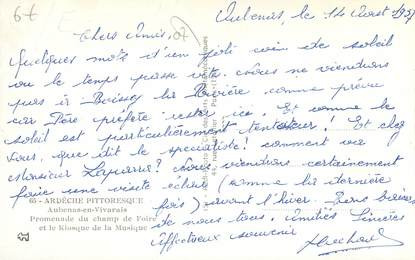 6€
Aubenas, le 14 Août 1957
Chers Amis,
07
Quelques mots d'un joli coin de soleil
où le temps passe vite. Nous ne viendrons
pas à Boissy la Rivière comme prévu
car Père préfère rester ici. Et comme le
soleil est particulièrement tentateur ! Et chez
vous, que dit le spécialiste ? comment va
Monsieur Laparra ? Nous viendrons certainement
faire une visite éclair (comme la dernière
fois) avant l'hiver. Bons baisers
de nous tous. Amitiés sincères
Affectueux souvenir
65 - ARDÈCHE PITTORESQUE
Aubenas-en-Vivarais
Promenade du champ de Foire
et le Kiosque de la Musique